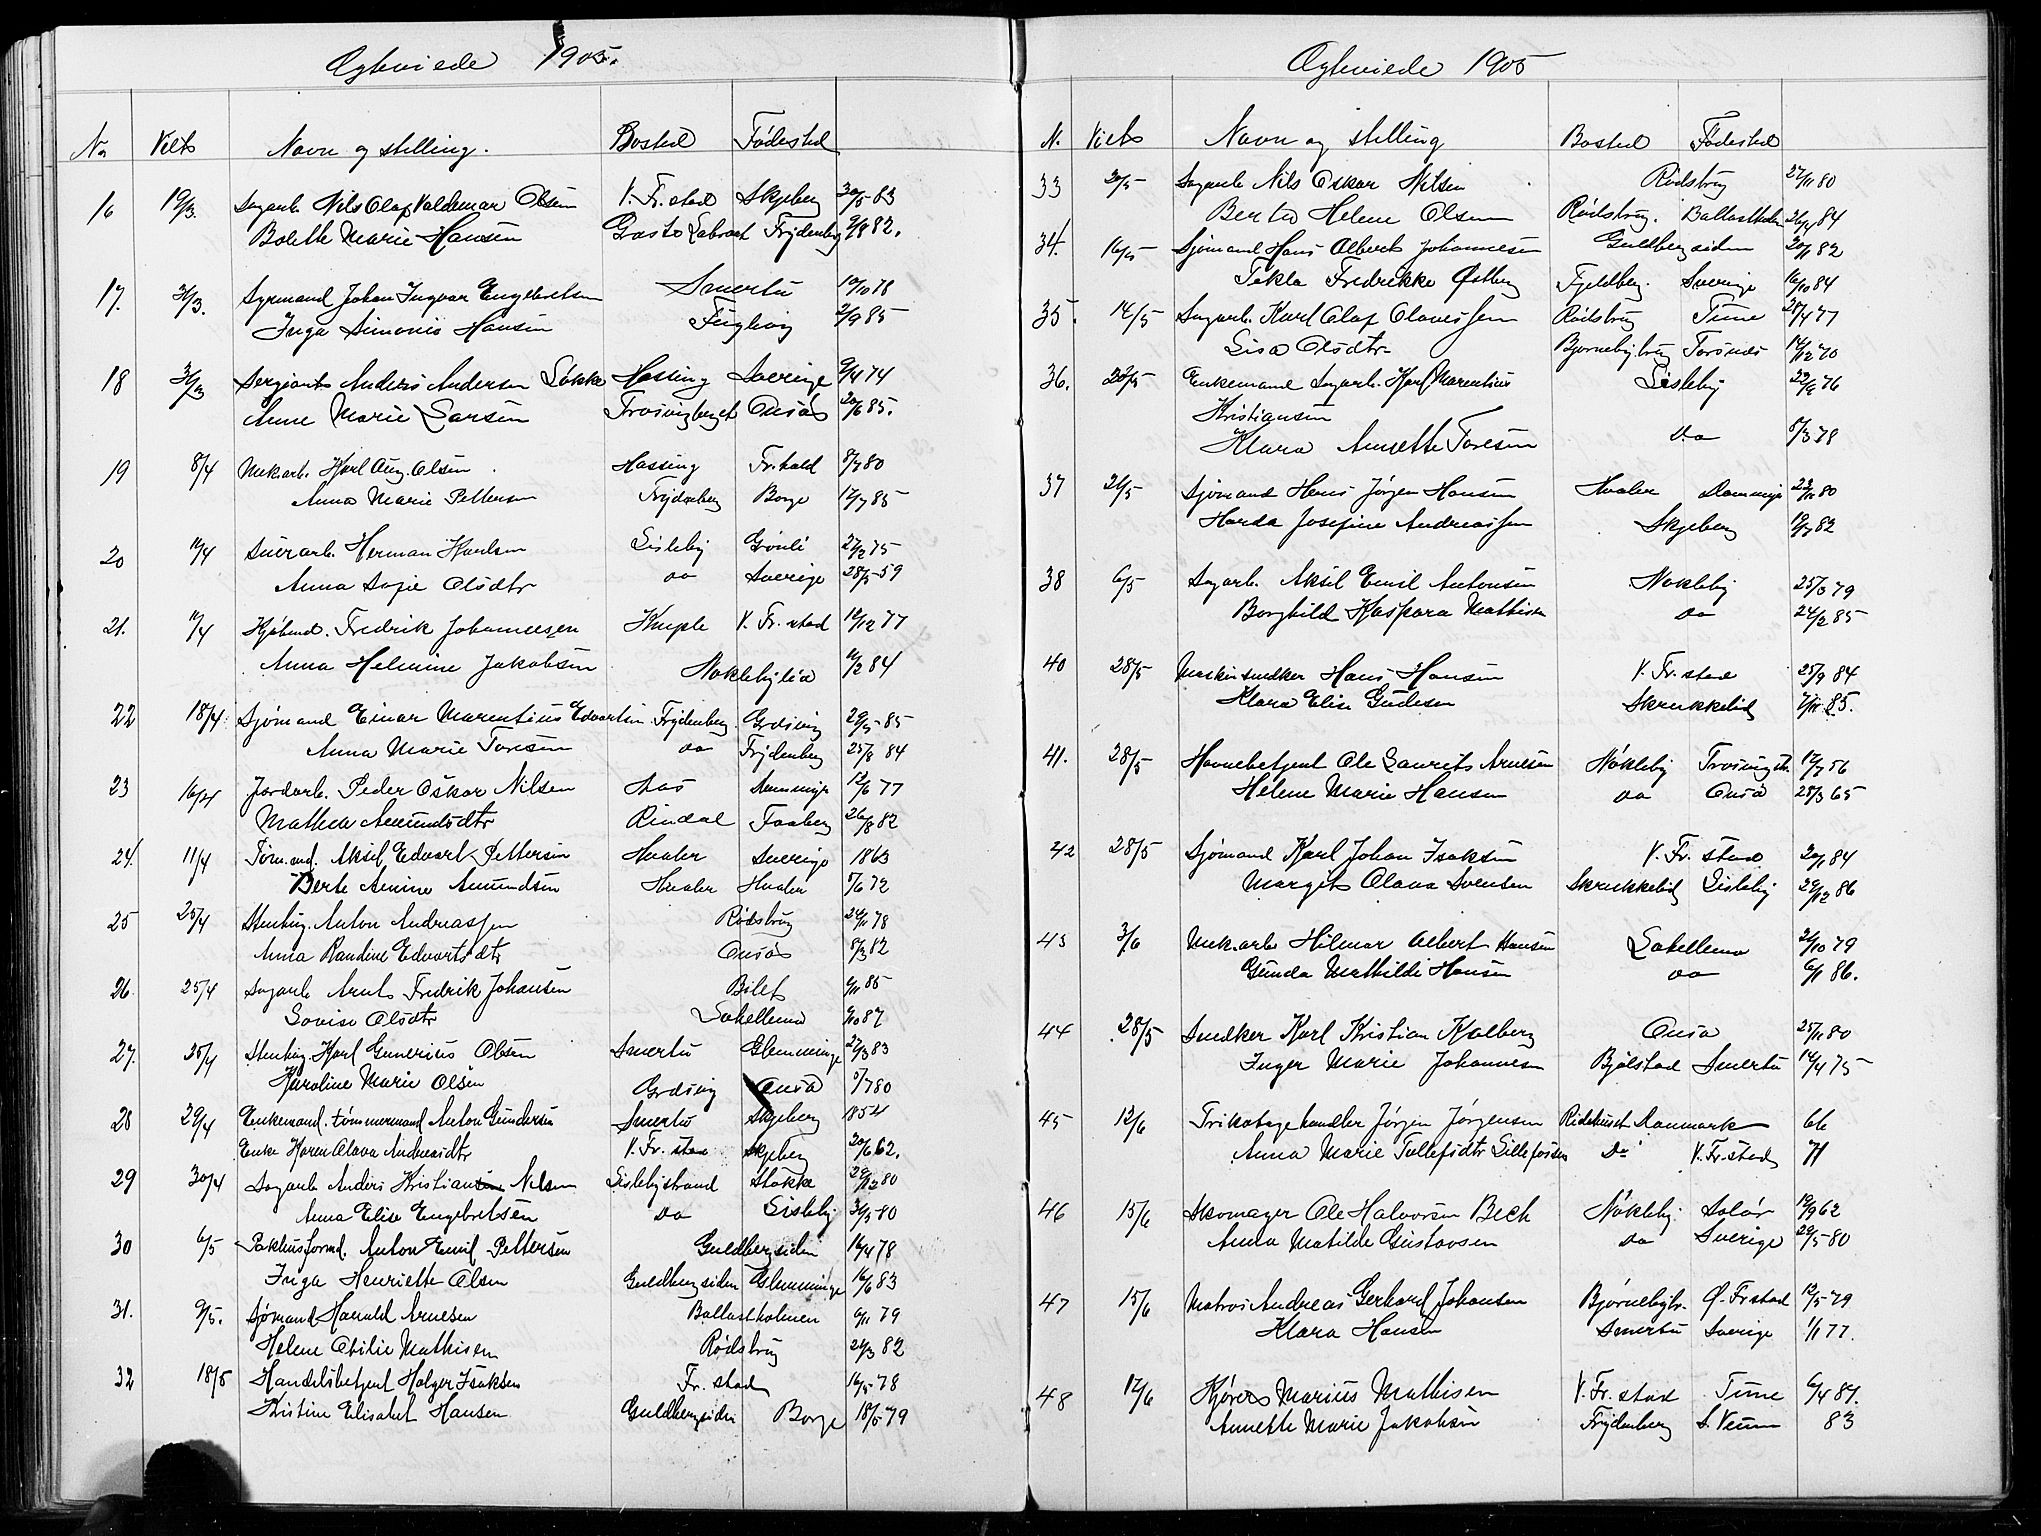 Ægteviede 1905.
No Viets Navn og stilling. Bosted Fødested
16 19/3. Sagarb. Nils Olaf Valdemar Olsen V. Fr.stad Skjeberg 30/5-83
Bolette Marie Hansen Frydenberg 9/8 82.
17. 26/3. Johan Ingvar Engebretsen Smertu 10/10 78
Inga Simonis Hansen Fuglevig 2/9 85
18 Sergeants Anders Andersen Løkke Hassing Sverige 9/4 74
Anne Marie Larsen Trosvigberget Onsø 20/6 85.
19 8/4 Mekarb. Karl Aug. Olsen. Hassing Fr.hald 8/7 80
Anna Marie Pettersen Frydenberg Borge 12/7 85
20 Herman Karlsen Lisleby 27/2 75
Anna Sofie Olsdtr do Sverige 28/5-59
21. Kjøbmd. Fredrik Johannessen Kniple V. Fr.stad 12/12 77
Anna Helmine Jakobsen Noklebylia 11/2 84
22 18/4. Sjømand Einar Marentius Edvartsen Frydenberg Grøsvig 29/5-85
Anna Marie Toresen do Frydenberg 25/8 84
23 16/4 Jordarb. Peder Oskar Nilsen Aas 12/6 77
Mathea Amundsdtr Rindal Faaberg 26/8 82
24. 11/4 Tømmd. Aksel Edvart Pettersen Hvaler Sverige 1863
Berte Amine Amundsen Hvaler Hvaler 5/6 72
25 25/4 Stenhug. Anton Andreassen Rødsbrug 24/11 78
Anna Randine Edvartsdtr Onsø 8/3 82
26. 25/4 Sagarb Arnt Fredrik Johansen Bilet 9/11 85
Lovise Olsdtr Labellemo 9/10 87
27. 25/4 Stenhug. Karl Gunerius Olsen Smertu Glemminge 27/3 83
Karoline Marie Olsen Grøsvig Onsø 5/7 80
28 29/4 Enkemand. tømmermand Anton Gundersen Smertu Skjeberg 1854
Enke Karen Olava Andreasdtr V. Fr. stad Skjeberg 20/6 62.
29 30/4 Sagarb Anders Kristiansen Nilsen Lislebystrand Stokke 29/12 80
Anna Elise Engebretsen do Lisleby 31/5-80
30 6/5 Pakhusformd. Anton Emil Pettersen Guldbergsiden 16/4 78
Inga Henriette Olsen Guldbergsiden Glemminge 16/6 83
31. 9/5. Sjømand Harald Arnesen Ballastholmen 9/11 79
Helene Otilie Mathisen Rødsbrug 24/3 82
32 18/5 Handelsbetjent Holger Isaksen Fr. stad 16/5-78
Kristine Elisabet Hansen Guldbergsiden Borge 18/5-79
Ægteviede 1905
N. Viets Navn og stilling Bosted Fødested
33 20/5 Sagarb Nils Oskar Nilsen Rødsbrug 27/11 80
Berta Helene Olsen Rødsbrug. Ballastholm 26/4 84
34. 16/5 Sjømand Hans Albert Johannesen Guldbergsiden 20/11 82
Tekla Fredrikke Østberg Fjeldberg. Sverige 16/10 84
35. 14/5 Sagarb. Karl Olaf Olavessen Rødsbrug Tune 28/4 77
Lisa Olsdtr Bjørnebybrug Torsnes 14/12 70
36. 28/5 Enkemand Sagarb. Karl Marentius Lisleby 76
Kristiansen
Klara Annette Toresen do 5/3 78
37 21/5 Sjømand Hans Jørgen Hansen Hvaler 80
Harda Josefine Andreassen Skjeberg 82
38 6/5 Sagarb. Aksel Emil Antonsen Nokleby 25/8 79
Borghild Kaspara Mathisen do 24/2 85
40 28/5 Maskinsnedker Hans Hansen V. Fr. stad 25/9 84
Klara Elise Gudesen Skrukkelid 7/11 85.
41. 28/5 Havnebetjent Ole Laurits Arnesen Nøkleby 12/7 56
Helene Marie Hansen do Onsø 28/3 65
42 28/5 Sjømand Karl Johan Isaksen V. Fr. stad 20/1 84
Margit Olava Svensen Skrukkelid Lisleby 29/12 86
43 3/6 Mek.arb Hilmar Albert Hansen Labellemo 26/10 79
Gunda Mathilde Hansen do 6/1 86.
44 28/5 Snedker Karl Kristian Kalberg Onsø 25/11 80
Inger Marie Johannesen Bjølstad Smertu 14/4 75
45 12/6 Trikotagehandler Jørgen Jørgensen Ridehuset Danmark 66
Anna Marie Tollefsdtr do V. Fr. stad 71
46 15/6 Skomager Ole Halvorsen Bech Nøkleby. Solør 19/9 62
Anna Matilde Gustavsen do Sverige 29/5-80
47 15/6 Matros Andreas Gerhard Johansen Bjørnebybr. Ø. Frstad 12/5-79
Klara Hansen Smertu Sverige 1/1 77.
48 12/6 Kjører Marius Mathisen V. Fr. stad Tune 6/4 87.
Annette Marie Jakobsen Frydenberg S. Veum 83